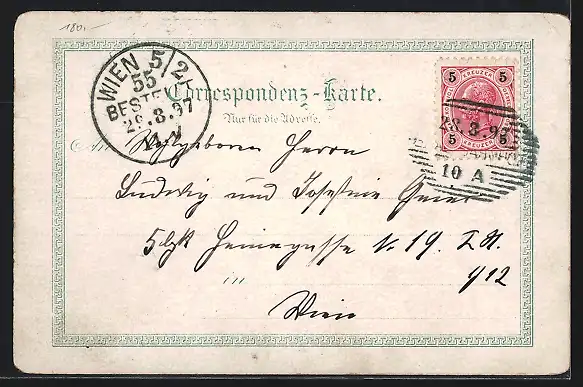 180.-
WIEN 5/2
55
BESTELLT
29.3.97
Correspondenz-Karte.
Nur für die Adresse.
5 KREUZER 5
28.3.97
5 5
10 A
An Wohlgeboren Herrn
Ludwig und Josefine
5 Bzk Heinegasse N. 19. T. N.
912
in
Wien